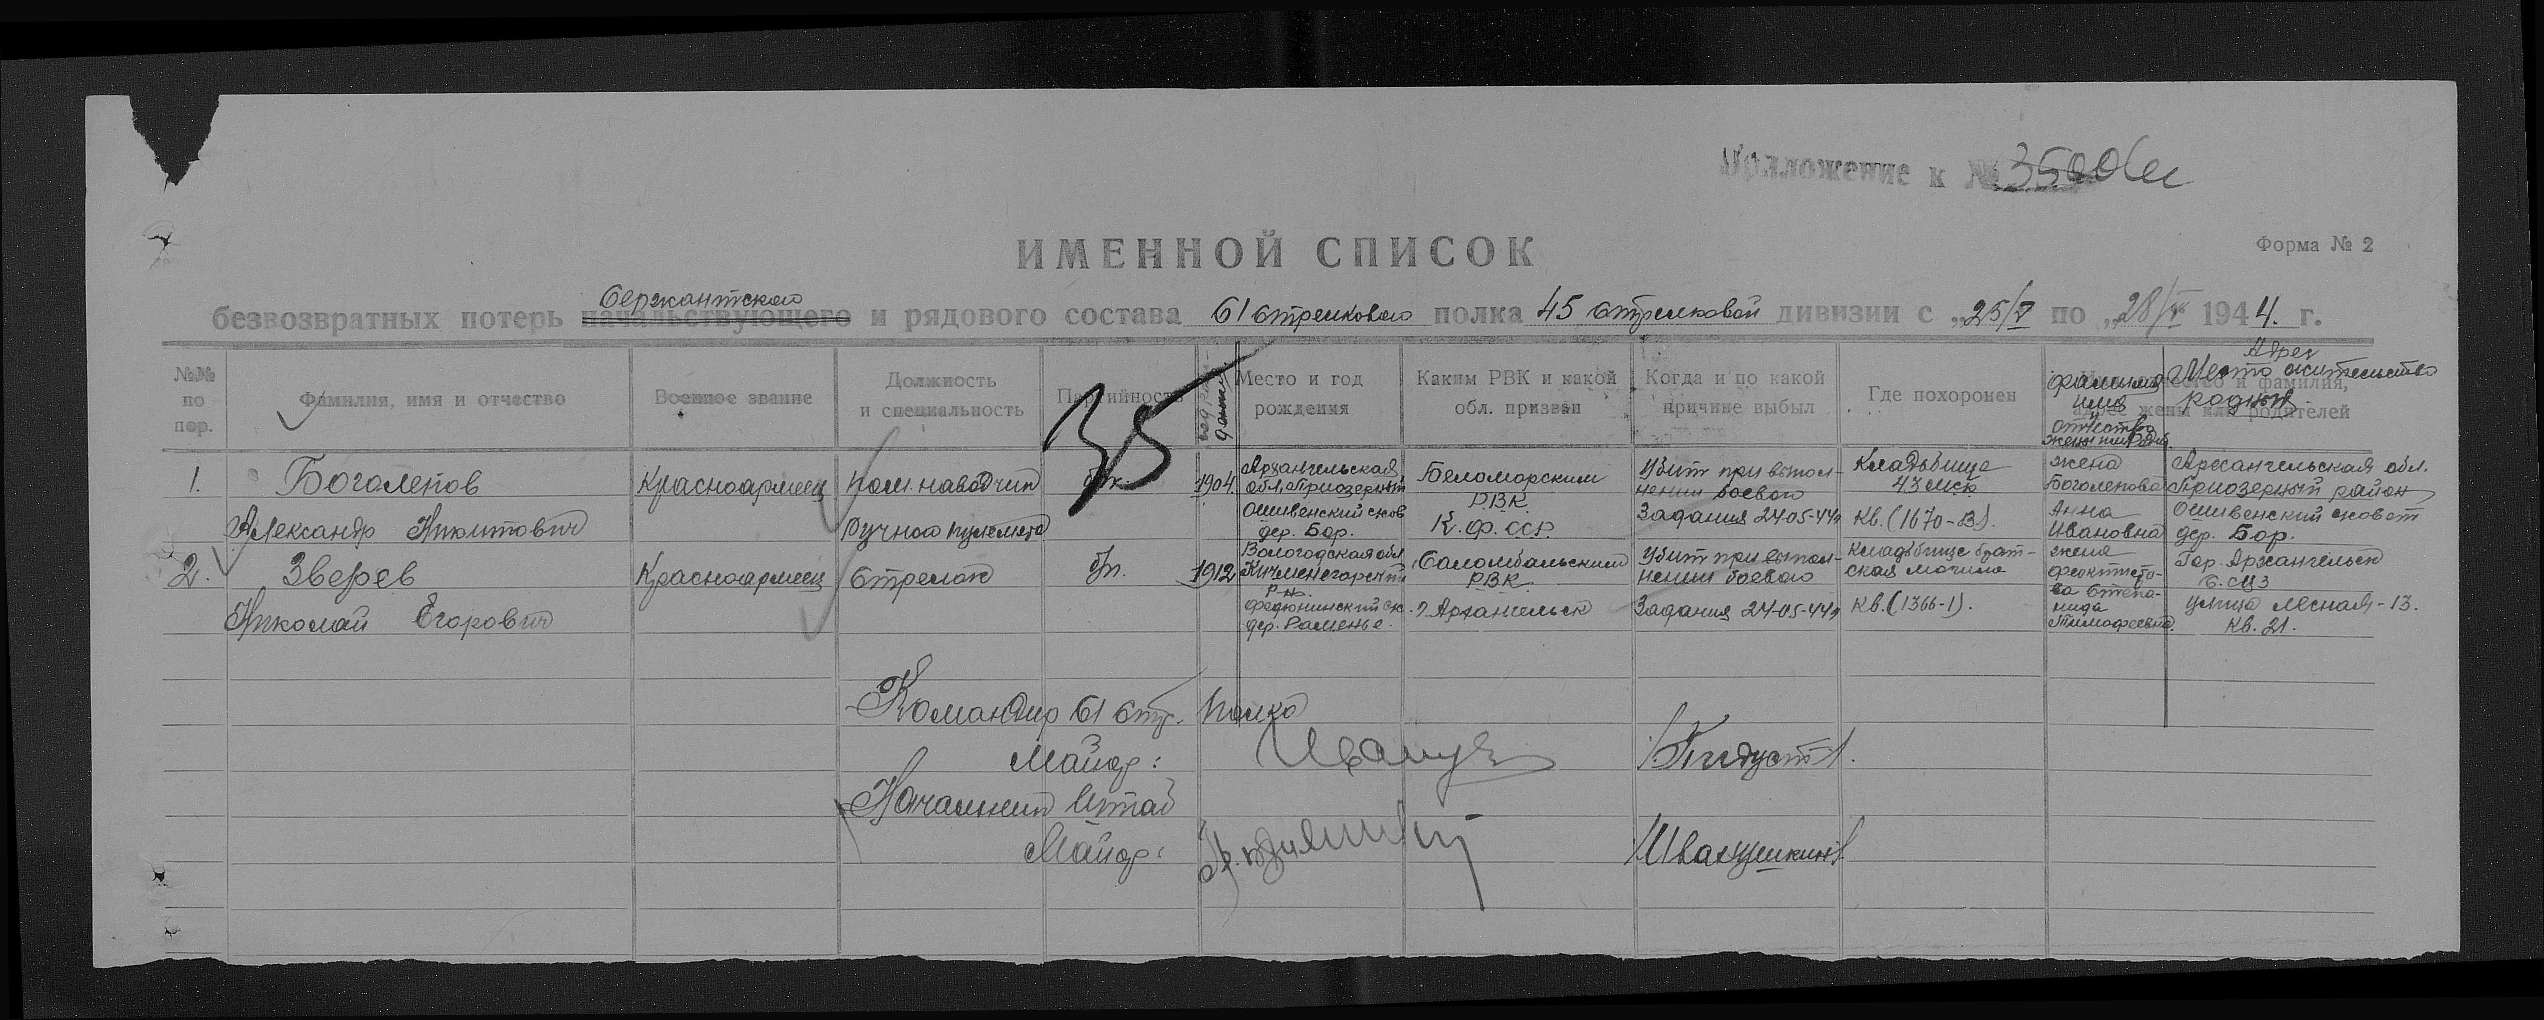 Приложение к № 3500с
ИМЕННОЙ СПИСОК
Форма № 2
Сержантского
безвозвратных потерь начальствующего и рядового состава 61 стрелкового полка 45 стрелковой дивизии с „25/V по „28/V 1944. г.
№№ по пор.
Фамилия, имя и отчество
Военное звание
Должность и специальность
Партийность
Место и год рождения
Каким РВК и какой обл. призван
Когда и по какой причине выбыл
Где похоронен
фамилия имя отчество жены или родит.
Адрес Место жительства родных
35
1.
Боголепов
Александр Никитович
Красноармеец
Пом. наводчик
Ручного пулемета
б/п.
1904.
Архангельская
обл, Приозерный
Ошивенский с/сов
дер. Бор.
Беломорским
Р.В.К.
К.Ф.ССР.
Убит при выпол-
нении боевого
Задания 24-05-44г
Кладбище
43 МСБ
Кв. (1670-В).
жена
Боголепова
Анна
Ивановна
Архангельская обл.
Приозерный район
Ошивенский совет
дер. Бор.
2.
Зверев
Николай Егорович
Красноармеец
Стрелок
б/п.
1912
Вологодская обл
Кичменгородский
р-н.
Федюнинский с/с.
дер. Раменье.
Соломбальским
РВК
г. Архангельск
Убит при выпол-
нении боевого
Задания 24-05-44г
Кладбище брат-
ская могила
Кв. (1366-1).
жена
Феоктисто-
ва Степа-
нида
Тимофеевна.
Гор. Архангельск
улица Лесная-13.
Кв. 21.
Командир 61 стр. Полка
Майор:
Начальник Штаб
Майор:
/Ивалушкин/